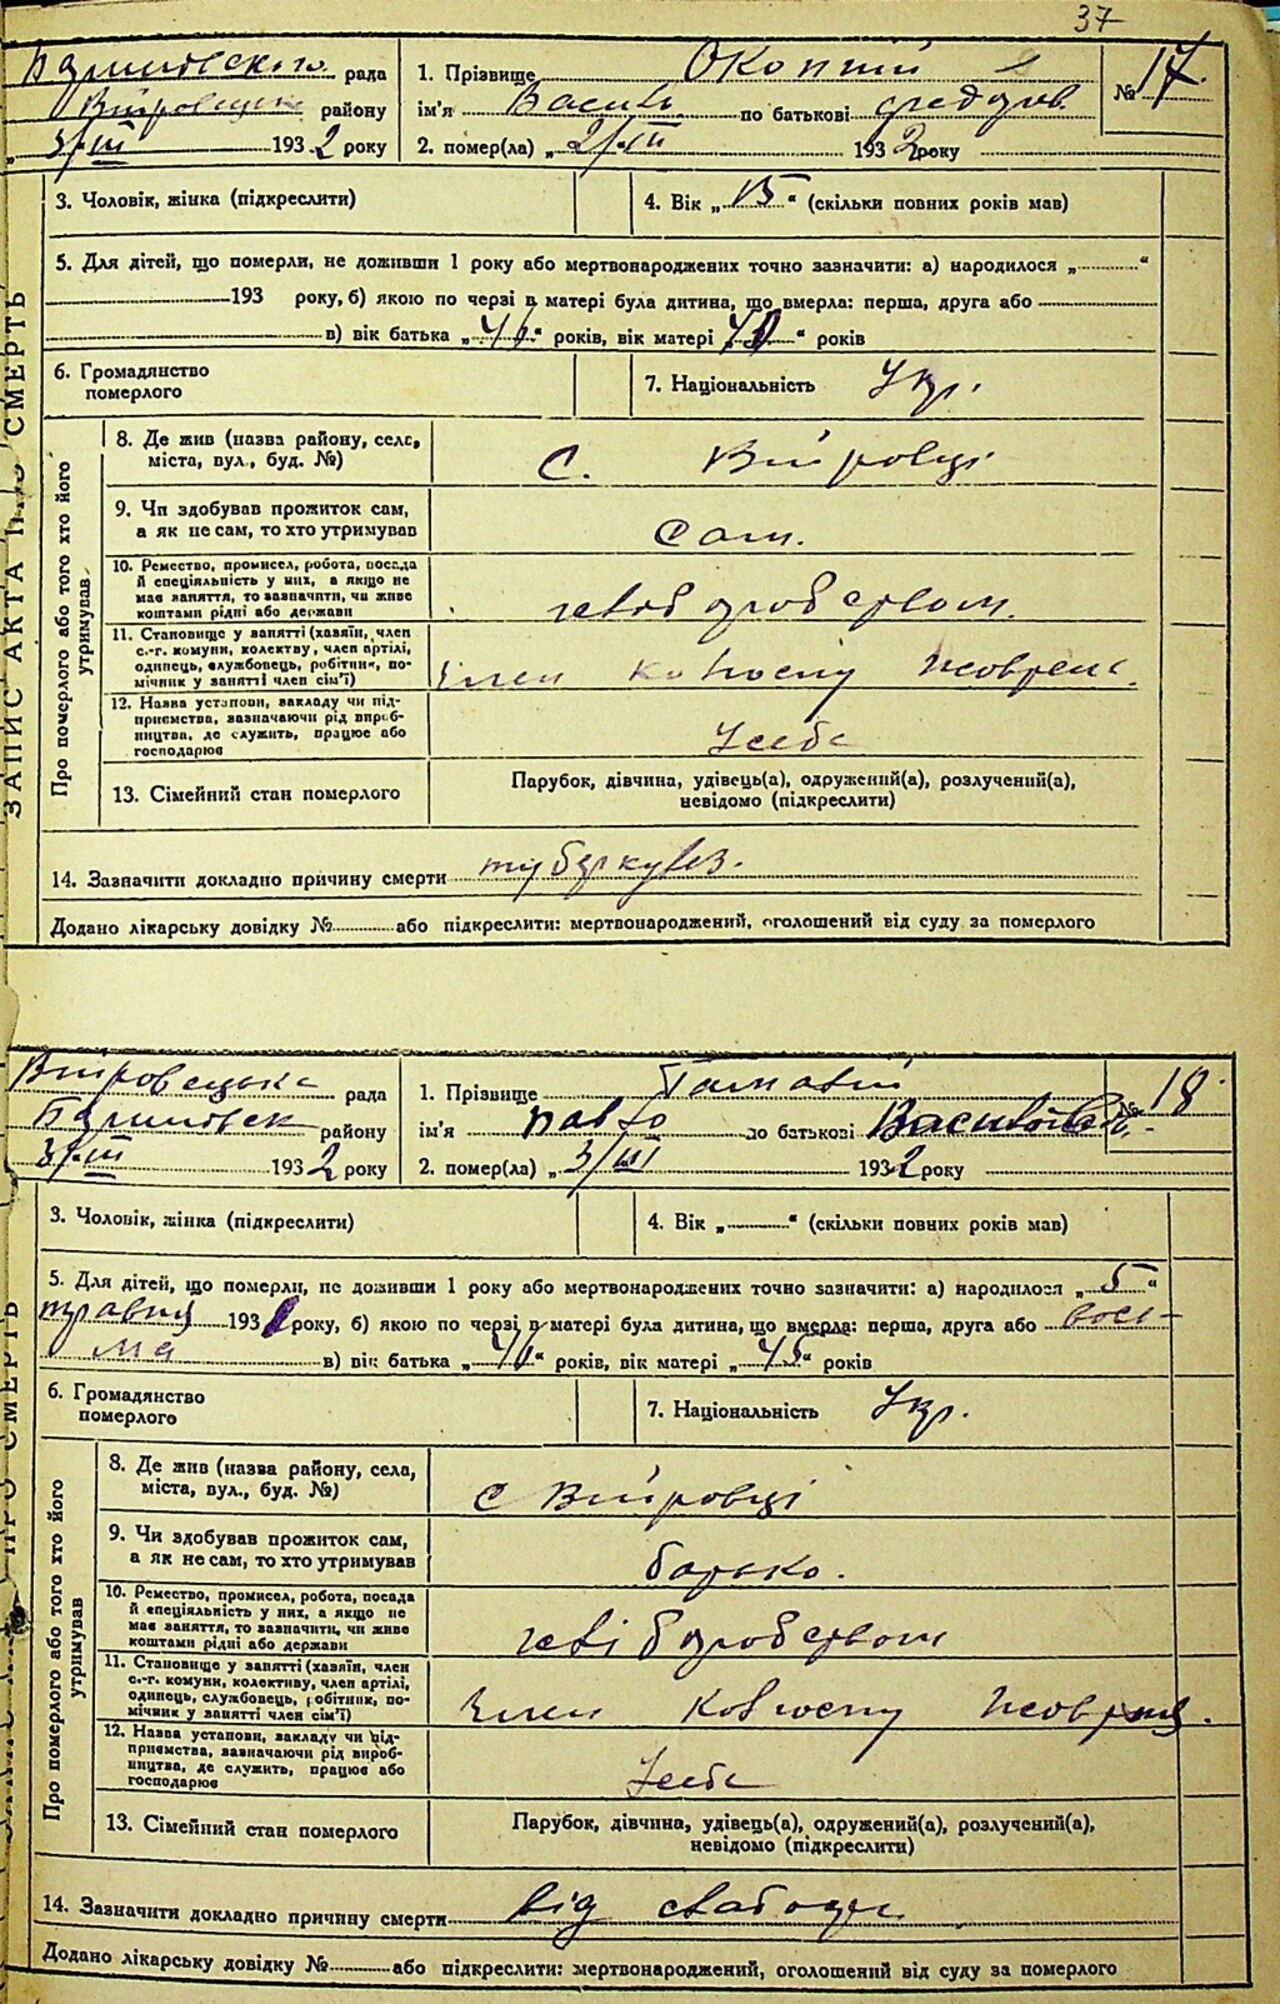 37
рада
1. Прізвище Окопний
№ 17.
району
ім'я Василь по батькові Федоров.
3/III 1932 року
2. помер(ла) „ 2/III 1932 року
ЗАПИС АКТА ПРО СМЕРТЬ
3. Чоловік, жінка (підкреслити)
4. Вік „ 15 “ (скільки повних років мав)
5. Для дітей, що померли, не доживши 1 року або мертвонароджених точно зазначити: а) народилося „ “
193 року, б) якою по черзі в матері була дитина, що вмерла: перша, друга або
в) вік батька „ “ років, вік матері „ “ років
6. Громадянство
померлого
7. Національність Укр.
Про померлого або того хто його
утримував
8. Де жив (назва району, села,
міста, вул., буд. №)
с. Війтовці
9. Чи здобував прожиток сам,
а як не сам, то хто утримував
Сам.
10. Ремество, промисел, робота, посада
й спеціяльність у них, а якщо не
має заняття, то зазначити, чи живе
коштами рідні або держави
хліборобством.
11. Становище у занятті (хазяїн, член
с.-г. комуни, колективу, член артілі,
одинець, службовець, робітник, по-
мічник у занятті член сім'ї)
член колгоспу
12. Назва установи, закладу чи під-
приємства, зазначаючи рід вироб-
ництва, де служить, працює або
господарює
У себе
13. Сімейний стан померлого
Парубок, дівчина, удівець(а), одружений(а), розлучений(а),
невідомо (підкреслити)
14. Зазначити докладно причину смерти туберкульз.
Додано лікарську довідку № або підкреслити: мертвонароджений, оголошений від суду за померлого
рада
1. Прізвище
№ 18.
району
ім'я Павло по батькові Васильов.
3/III 1932 року
2. помер(ла) „ 3/III 1932 року
3. Чоловік, жінка (підкреслити)
4. Вік „ “ (скільки повних років мав)
5. Для дітей, що померли, не доживши 1 року або мертвонароджених точно зазначити: а) народилося „ 5 “
травня 1931 року, б) якою по черзі в матері була дитина, що вмерла: перша, друга або вось-
ма в) вік батька „ “ років, вік матері „ 45 “ років
6. Громадянство
померлого
7. Національність Укр.
Про померлого або того хто його
утримував
8. Де жив (назва району, села,
міста, вул., буд. №)
с Війтовці
9. Чи здобував прожиток сам,
а як не сам, то хто утримував
батько.
10. Ремество, промисел, робота, посада
й спеціяльність у них, а якщо не
має заняття, то зазначити, чи живе
коштами рідні або держави
хліборобством
11. Становище у занятті (хазяїн, член
с.-г. комуни, колективу, член артілі,
одинець, службовець, робітник, по-
мічник у занятті член сім'ї)
член колгоспу
12. Назва установи, закладу чи під-
приємства, зазначаючи рід вироб-
ництва, де служить, працює або
господарює
У себе
13. Сімейний стан померлого
Парубок, дівчина, удівець(а), одружений(а), розлучений(а),
невідомо (підкреслити)
14. Зазначити докладно причину смерти від
Додано лікарську довідку № або підкреслити: мертвонароджений, оголошений від суду за померлого